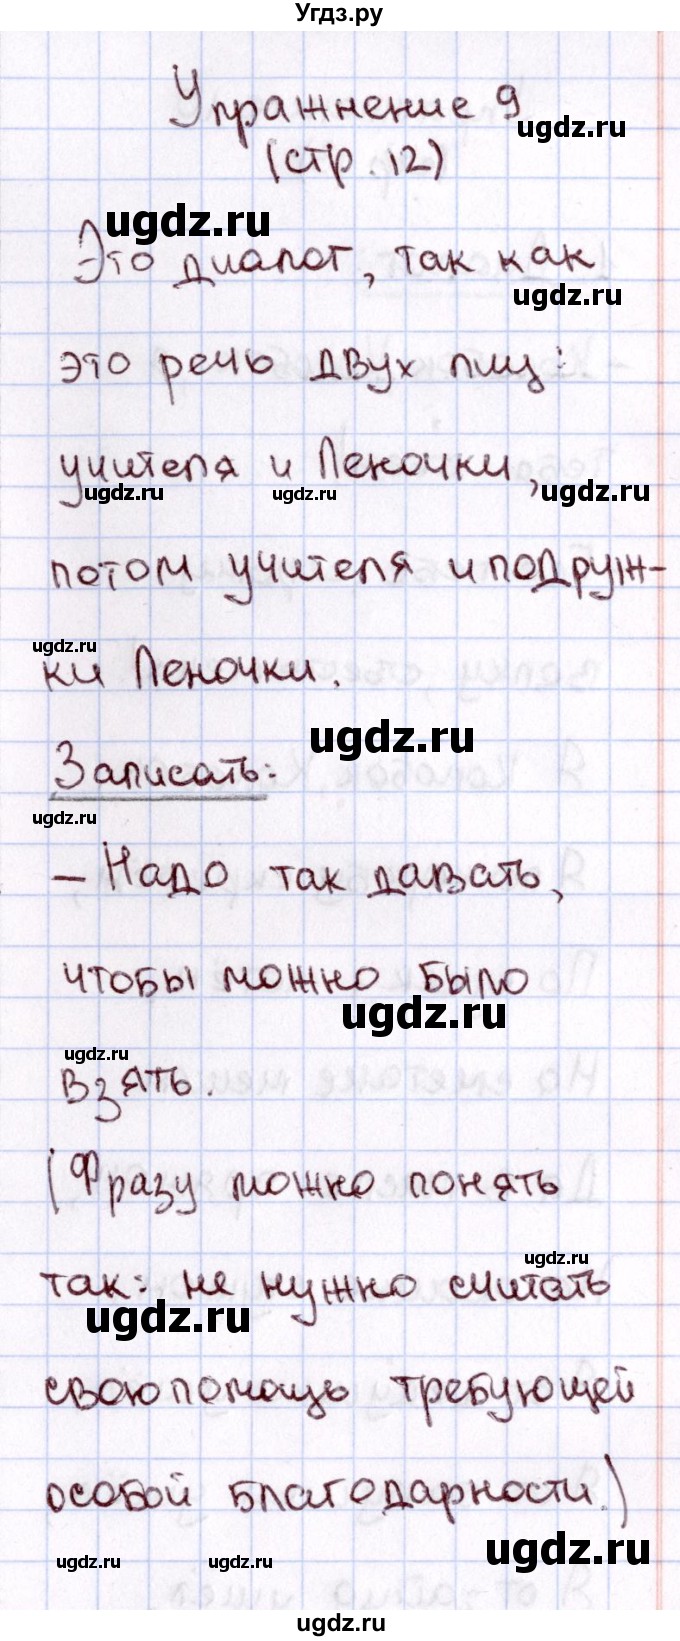 Угдз.ру
Упражнение 9
ugdz.ru
(стр. 12)
ugdz.ru
Это диалог, так как
ugdz.ru
это речь двух лиц:
учителя и Леночки,
ugdz.ru ugdz.ru ugdz.ru
потом учителя и подруж-
ugdz.ru
ки Леночки.
ugdz.ru
Записать:
ugdz.ru
– Надо так давать,
чтобы можно было
ugdz.ru
ugdz.ru
взять.
(Фразу можно понять
ugdz.ru
так: не нужно считать
ugdz.ru
свою помощь требующей
особой благодарности.)
ugdz.ru
ugdz.ru ugdz.ru
ugdz.ru